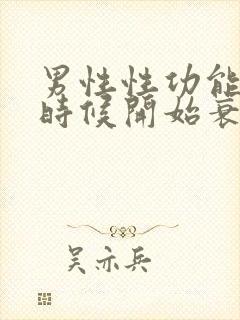 男性性功能
時候開始衰
吴亦兵